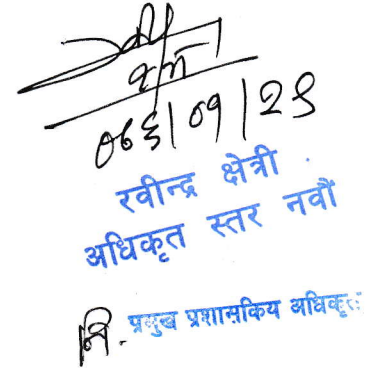 ०८६/०१/२९
रवीन्द्र क्षेत्री
अधिकृत स्तर नवौं
नि. प्रमुख प्रशासकिय अधिकृत